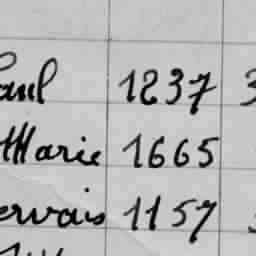 Paul 1237 3
Marie 1665
ervais 1157